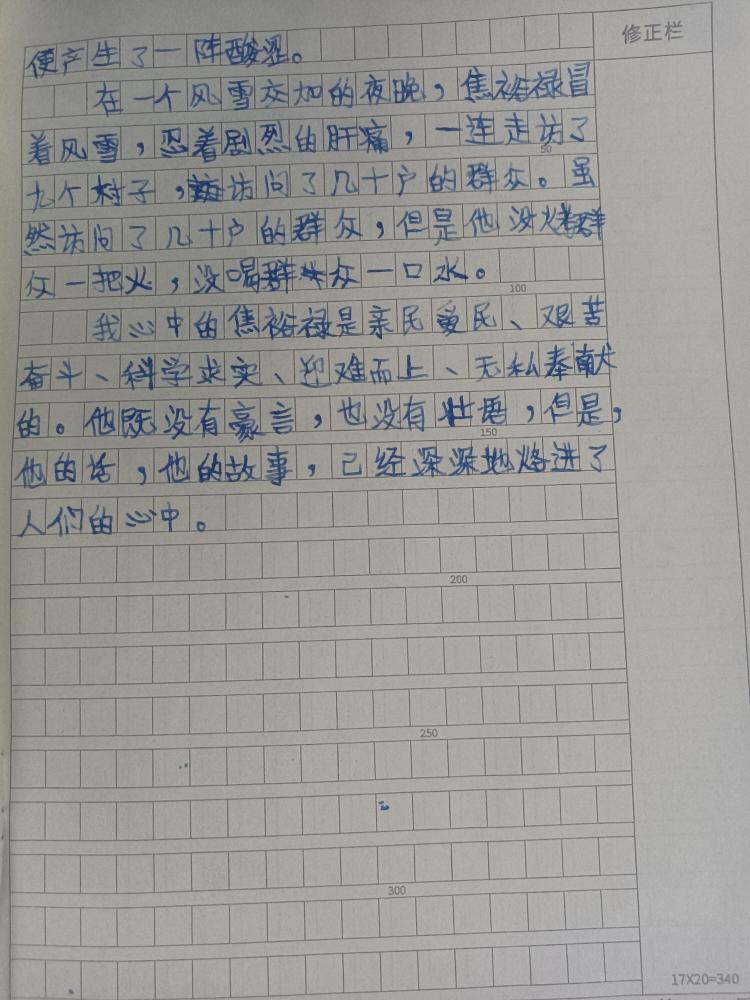 便产生了一阵酸涩。
在一个风雪交加的夜晚，焦裕禄冒
着风雪，忍着剧烈的肝痛，一连走访了
九个村子，访问了几十户的群众。虽
然访问了几十户的群众，但是他没火烤群
众一把火，没喝群众一口水。
我心中的焦裕禄是亲民爱民、艰苦
奋斗、科学求实、迎难而上、无私奉献
的。他既没有豪言，也没有壮语，但是，
他的话，他的故事，已经深深地烙进了
人们的心中。
修正栏
50
100
150
200
250
300
17X20=340